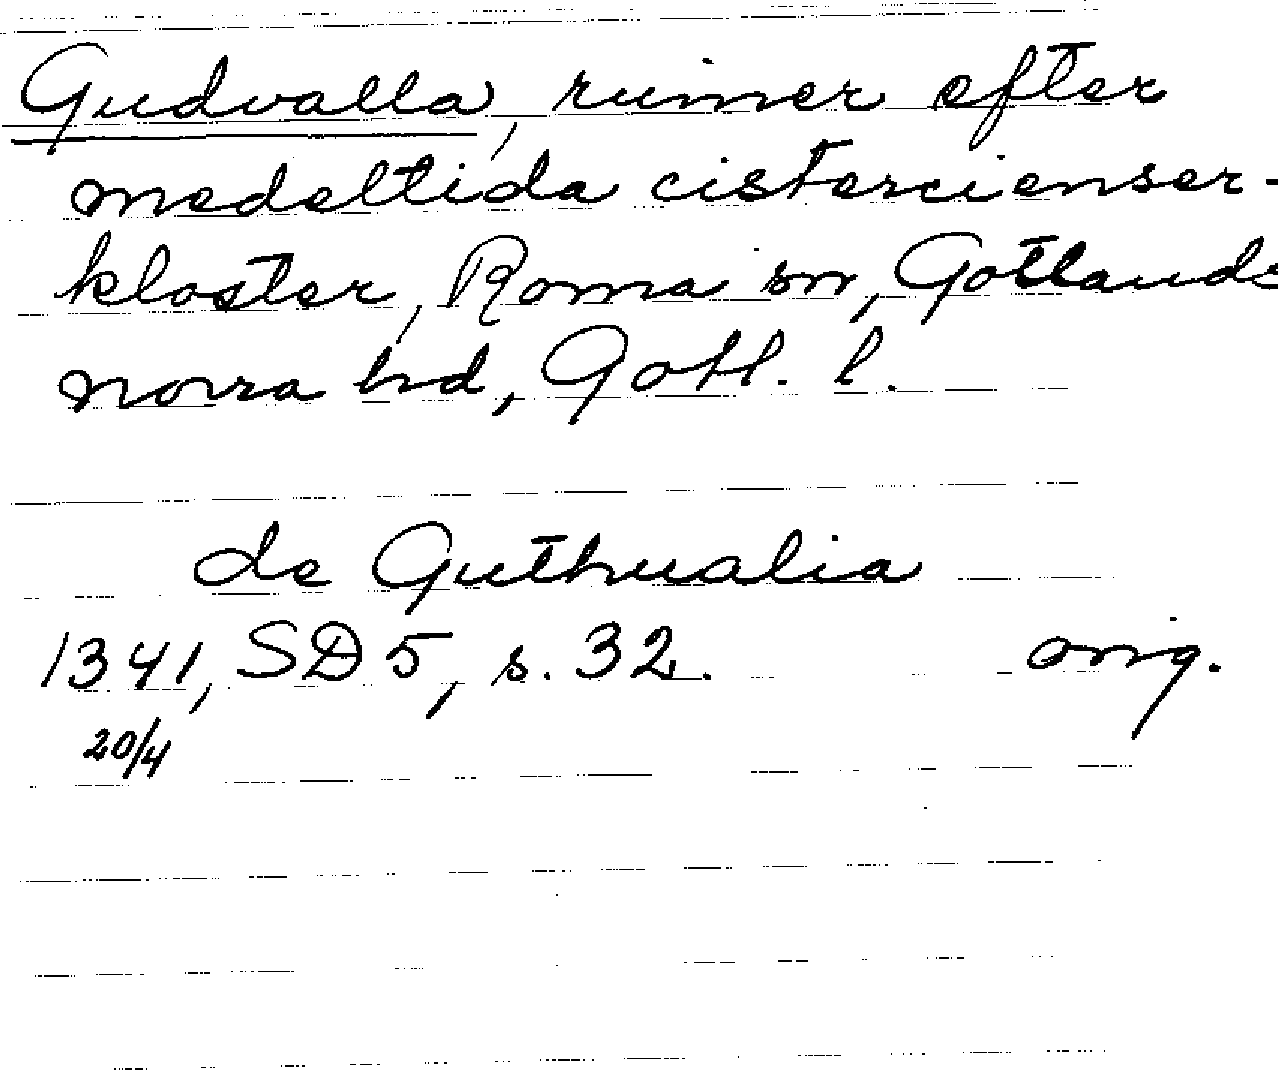 Gudvalla, ruiner efter
medeltida cistercienser-
kloster, Roma sn, Gotlands
norra hd, Gotl. l.
de Guthualia
1341, SD 5, s. 32. orig.
20/4